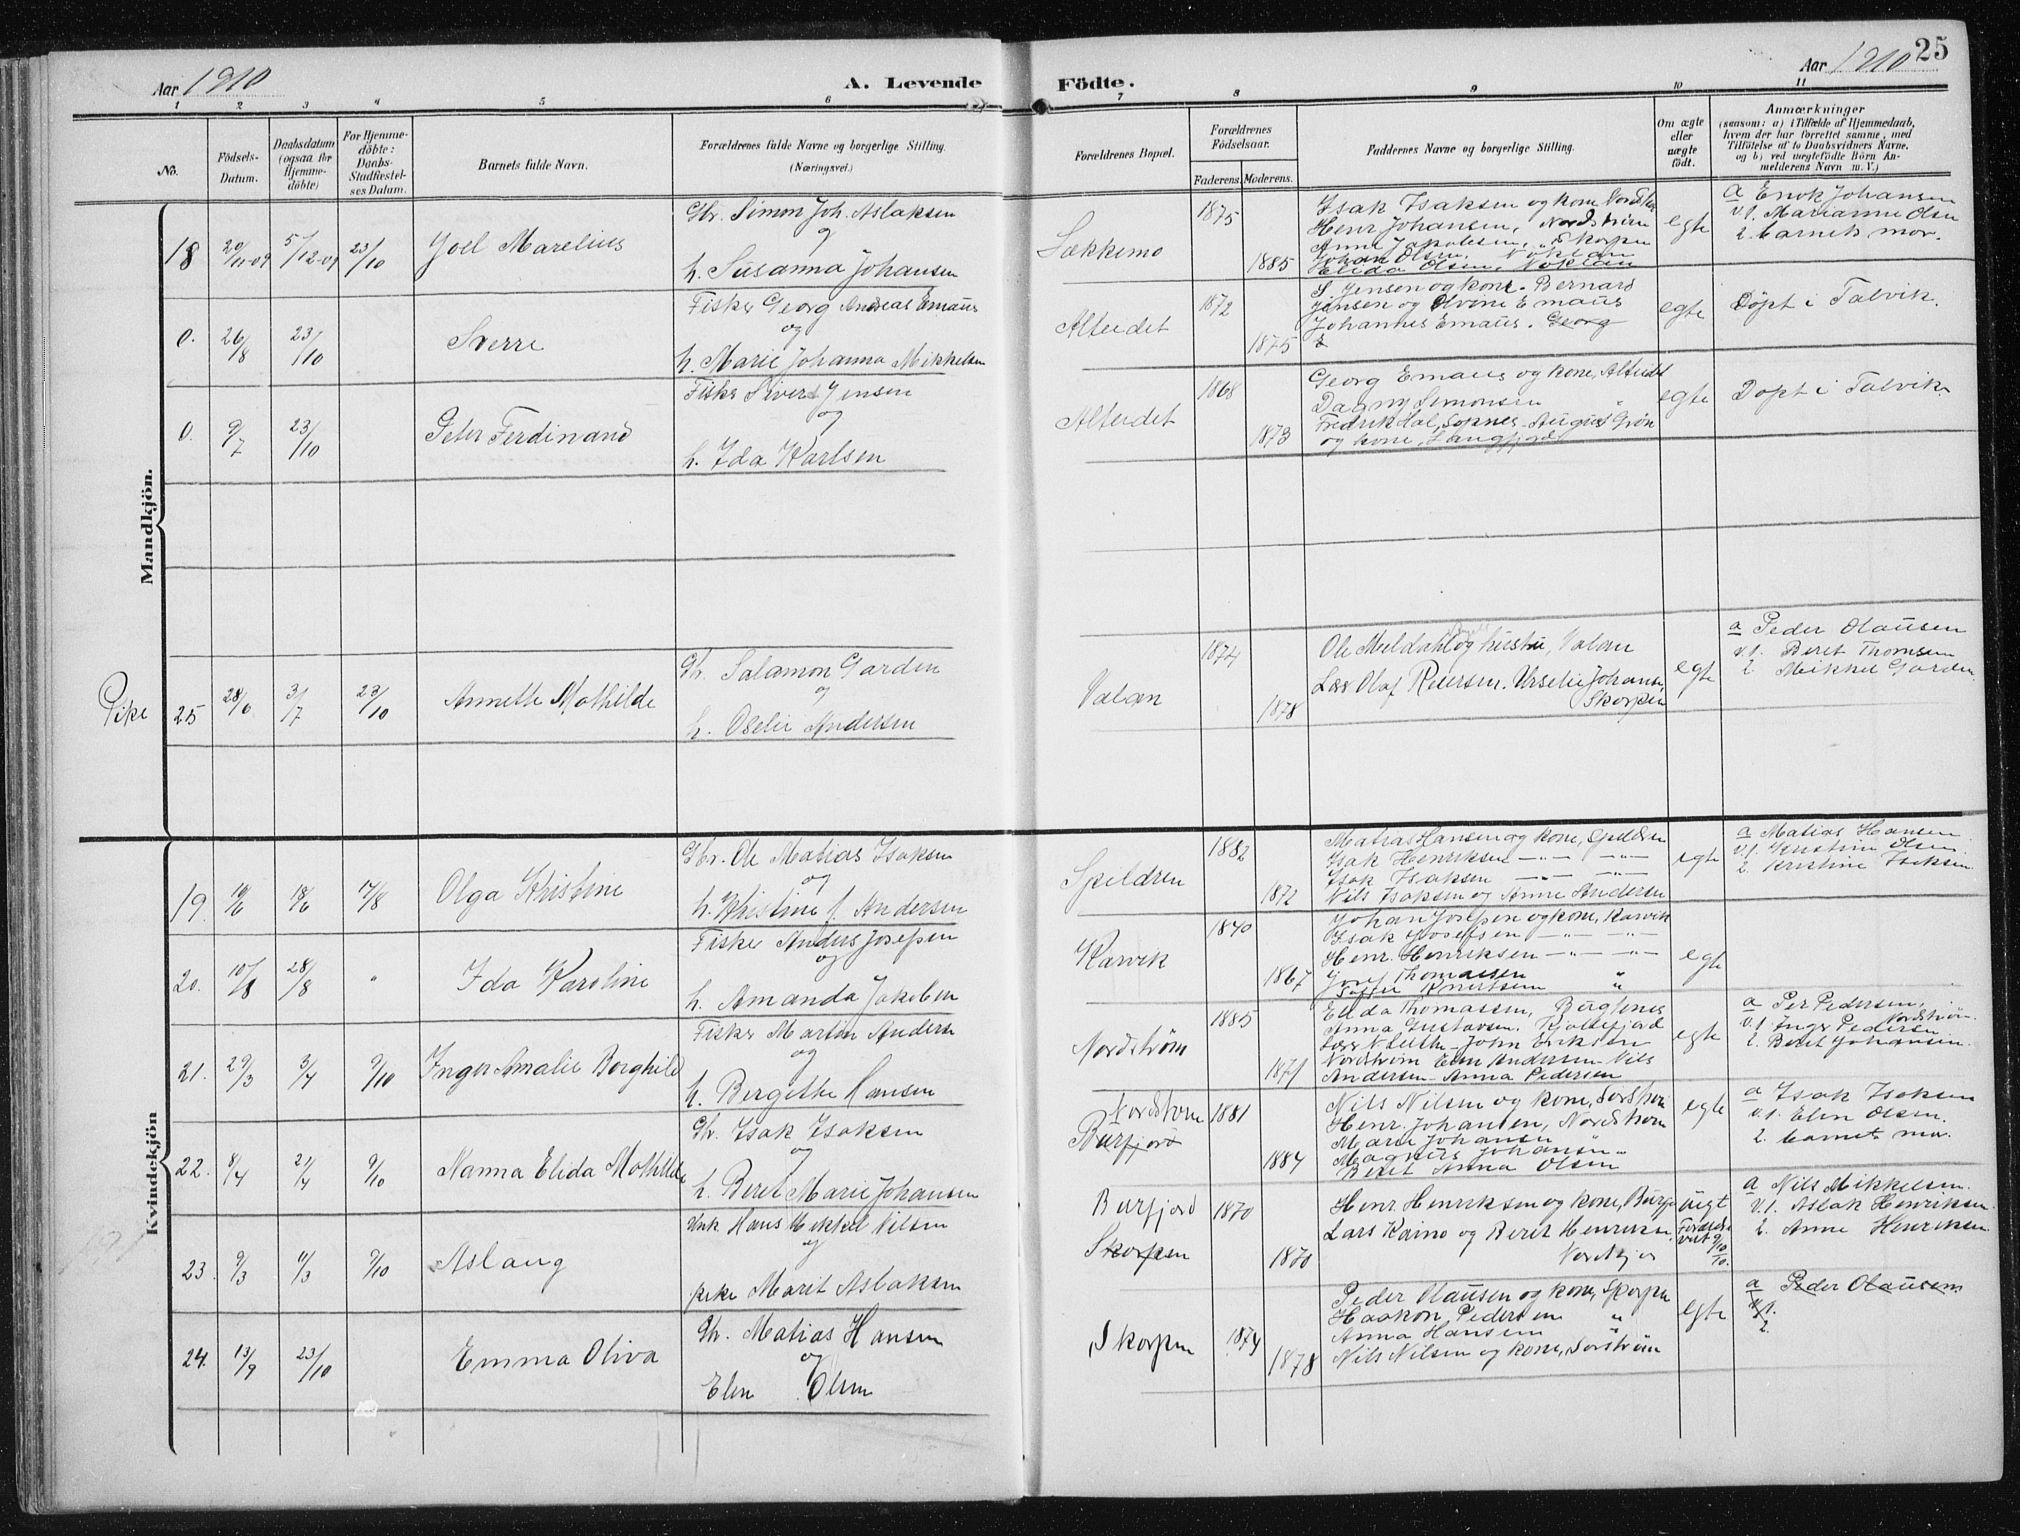 Aar 1910
A. Levende
Födte.
Aar 1910
25
1 2 3 4 5 6 7 8 9 10 11
No.
Födsels-Datum.
Daabsdatum (ogsaa for Hjemme-döbte)
For Hjemme-döbte: Daabs-Stadfestel-ses Datum.
Barnets fulde Navn.
Forældrenes fulde Navne og borgerlige Stilling. (Næringsvei.)
Forældrenes Bopæl.
Forældrenes Födselsaar.
Faderens. Moderens.
Faddernes Navne og borgerlige Stilling.
Om ægte eller uægte födt.
Anmærkninger
(saasom: a) i Tilfælde af Hjemmedaab,
hvem der har forrettet samme, med
Tilföielse af to Daabsvidners Navne,
og b) ved uægtefödte Börn An-
melderens Navn m. V.)
Mandkjön.
18 20/11-09 5/12-09 23/10 Joel Marelius
Gbr. Simon Joh. Aslaksen
og
h. Susanna Johansen
Søkkemo 1875 1885
Isak Isaksen og kone
Henr Johansen, Nordström
Anne Jakobsen, " Skorpen
Johan Olsen, Noklan
Elida Olsen, Noklan
egte
a Enok Johansen
v. 1. Marianne Olsen
2. barnets mor.
0. 26/8 23/10 Sverre
Fisker Georg Andreas Emaus
og
h. Marie Johanna Mikkelsen
Alteidet 1872 1875
S. Jensen og kone. Bernard
Jensen og Olvine Emaus
Johannes Emaus. Georg
egte
Döpt i Talvik.
0. 9/7 23/10 Peter Ferdinand
Fisker Sivert Jensen
og
h. Ida Karlsen
Alteidet 1868 1873
Georg Emaus og kone, Alteidet
Dagny Simonsen "
Fredrik Hal, Sopnes - August Grön
og kone, Langfjord
egte
Döpt i Talvik
Pike
25 28/6 3/7 23/10 Annette Mathilde
Gbr. Salamon Garden
og
h. Oselie Andersen
Valan 1874 1878
Ole Meldahl og hustru, Valan
Olaf Petersen. Urselie Johansen,
Skorpen
egte
a Peder Olausen
v. 1. Beret Thomsen
2. Mikkel Garden
Kvindekjön
19. 10/6 18/6 17/8 Olga Kristine
Gbr. Ole Matias Isaksen
og
h. Kristine f. Andersen
Spildren 1882 1872
Matias Hansen og kone, Spildren
Isak Henriksen — " — — " —
Isak Isaksen — " — — " —
Nils Isaksen og Anne Andersen
egte
a Matias Hansen
v. 1. Kristine Olsen
2. Kristine Isaksen
20. 10/8 28/8 " Ida Karoline
Fisker Anders Josefsen
og
h. Amanda Jakobsen
Karvik 1840 1867
Johan Josefsen og kone, Karvik
Isak Josefsen — " — — " —
Henr. Henriksen — " — — " —
Josef Thomassen "
Knutsen "
egte
21. 29/3 3/4 9/10 Inger Amalie Borghild
Fisker Martin Andersen
og
h. Bergette Hansen
Nordström 1885 1871
Elida Thomassen, Bugtenes
Anna Gustavsen. Kjöllefjord
John Eriksen
Nordström Elen Andersen - Nils
Andersen - Anna Pedersen
egte
a Per Pedersen,
Nordström.
v. 1. Inger Pedersen.
2. Beret Johansen.
22. 8/4 21/4 9/10 Nanna Elida Mathilde
Gbr. Isak Isaksen
og
h. Beret Marie Johansen
Nordström
Burfjord 1881 1884
Nils Nilsen og kone, Sörström
Henr. Johansen, Nordström
Marie Johansen
Magnus Johansen "
Beret Anna Olsen
egte
a Isak Isaksen
v. 1. Elen Olsen.
2. barnets mor.
23. 9/3 11/3 9/10 Aslaug
Unk Hans Mikkel Nilsen
og
pike Marit Aslaksen
Burfjord
Skorpen 1870 1870
Henr. Henriksen og kone, Burfjord
Lars Kaino og Beret Henriksen,
uegt
9/10 10.
a Nils Mikkelsen.
v. 1. Aslak Henriksen
2. Anne Henriksen
24. 13/9 23/10 Emma Oliva
Gbr. Matias Hansen
og
Elen Olsen
Skorpen 1874 1878
Peder Olausen og kone, Skorpen
Haakon Pedersen "
Anna Hansen
Nils Nilsen og kone, Sörström
egte
a Peder Olausen
v. 1.
2.